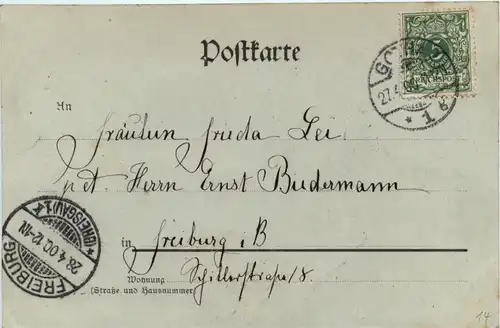 Postkarte
GOTHA
27.4.00
* 1 g
An
Fräulein Frieda Lei
p. Adr. Herrn Ernst Biedermann
in Freiburg i B
Schillerstraße 18.
Wohnung
(Straße und Hausnummer)
FREIBURG
28.4.00.12-1N.
* (BREISGAU) 1. k
14